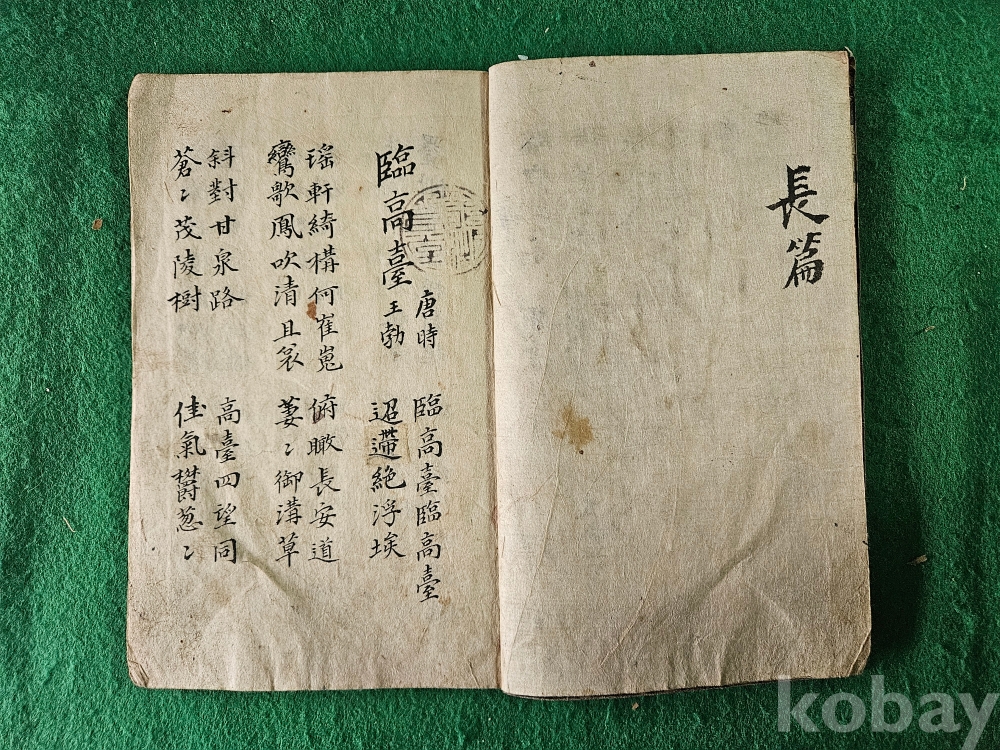 長篇
臨高臺
唐時
王勃
臨高臺臨高臺
迢遰絶浮埃
瑶軒綺構何崔嵬
鸞歌鳳吹清且哀
俯瞰長安道
萋〻御溝草
斜對甘泉路
蒼〻茂陵樹
高臺四望同
佳氣欝葱〻
kobay